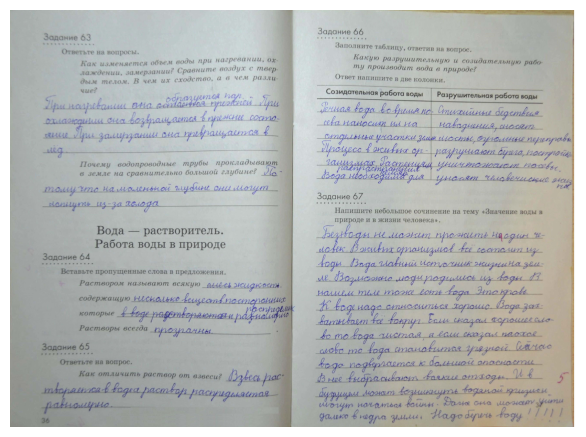 Задание 63
Ответьте на вопросы.
Как изменяется объем воды при нагревании, ох-
лаждении, замерзании? Сравните воздух с твер-
дым телом. В чем их сходство, а в чем разли-
чие?
образуется пар.
При нагревании она прежней. При
охлаждении она возвращается в прежнее состо-
яние. При замерзании она превращается в
лёд
Почему водопроводные трубы прокладывают
в земле на сравнительно большой глубине? По-
тому что на маленькой глубине они могут
лопнуть из-за холода
Вода — растворитель.
Работа воды в природе
Задание 64
Вставьте пропущенные слова в предложения.
Раствором называют всякую смесь жидкости
содержащую несколько веществ посторонних
которые в воде растворяются и равномерно
распределены
Растворы всегда прозрачны.
Задание 65
Ответьте на вопрос.
Как отличить раствор от взвеси? Взвесь рас-
творяется в воде а раствор распределяется
равномерно.
36
Задание 66
Заполните таблицу, ответив на вопрос.
Какую разрушительную и созидательную рабо-
ту производит вода в природе?
Ответ напишите в две колонки.
Созидательная работа воды
Разрушительная работа воды
вода во время
наносит ил на
отдельные участки земли
Процесс в живых ор-
ганизмах.
Вода необходима для
Стихийные бедствия
наводнения, сносят
мосты, огромные
разрушают
уничтожают посевы,
уносят человеческие жизни
Задание 67
Напишите небольшое сочинение на тему «Значение воды в
природе и в жизни человека».
Без воды не может прожить ни один че-
ловек. В живых организмах всё состоит из
воды. Вода главный источник жизни на зем-
ле. Возможно люди родились из воды. В
нашем теле тоже есть вода.
К воде надо относиться хорошо. Вода
вокруг. Если сказал хорошее сло-
во то вода чистая, а если сказал плохое
слово то вода становится грязной. Сейчас
вода подвергается к большой опасности
В неё выбрасывают всякие отходы. И в
будущем может возникнуть водяной кризис
могут начаться войны. Даже она может уйти
далеко в недра земли. Надо беречь воду!!!!!
5